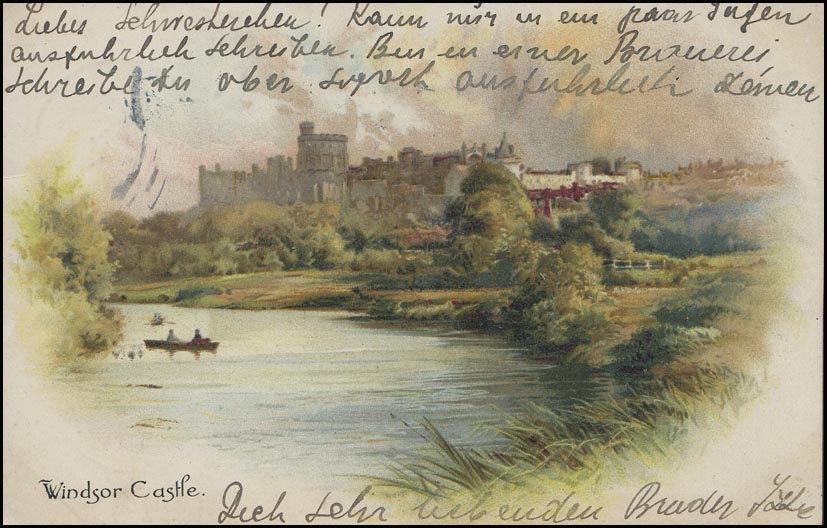 Liebes Schwesterchen! Kann nur in ein paar Tagen
ausfuhrlich schreiben. Bin in einer Brauerei
schreibe Du aber sofort ausfuhrlich Deinen
Windsor Castle.
Dich sehr liebenden Bruder